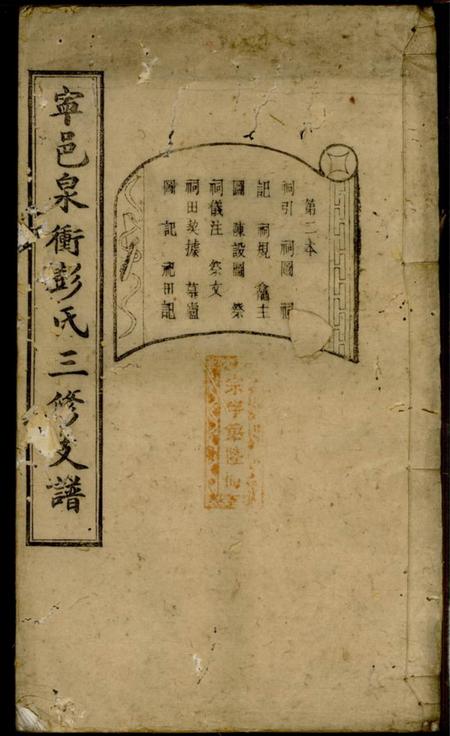 寧邑泉衝彭氏三修支譜
第二本
祠引 祠圖 祠
記 祠規 龕主
圖 陳設圖 祭
祠儀注 祭文
祠田契據 墓廬
圖 記 祀田記
宗字第陸